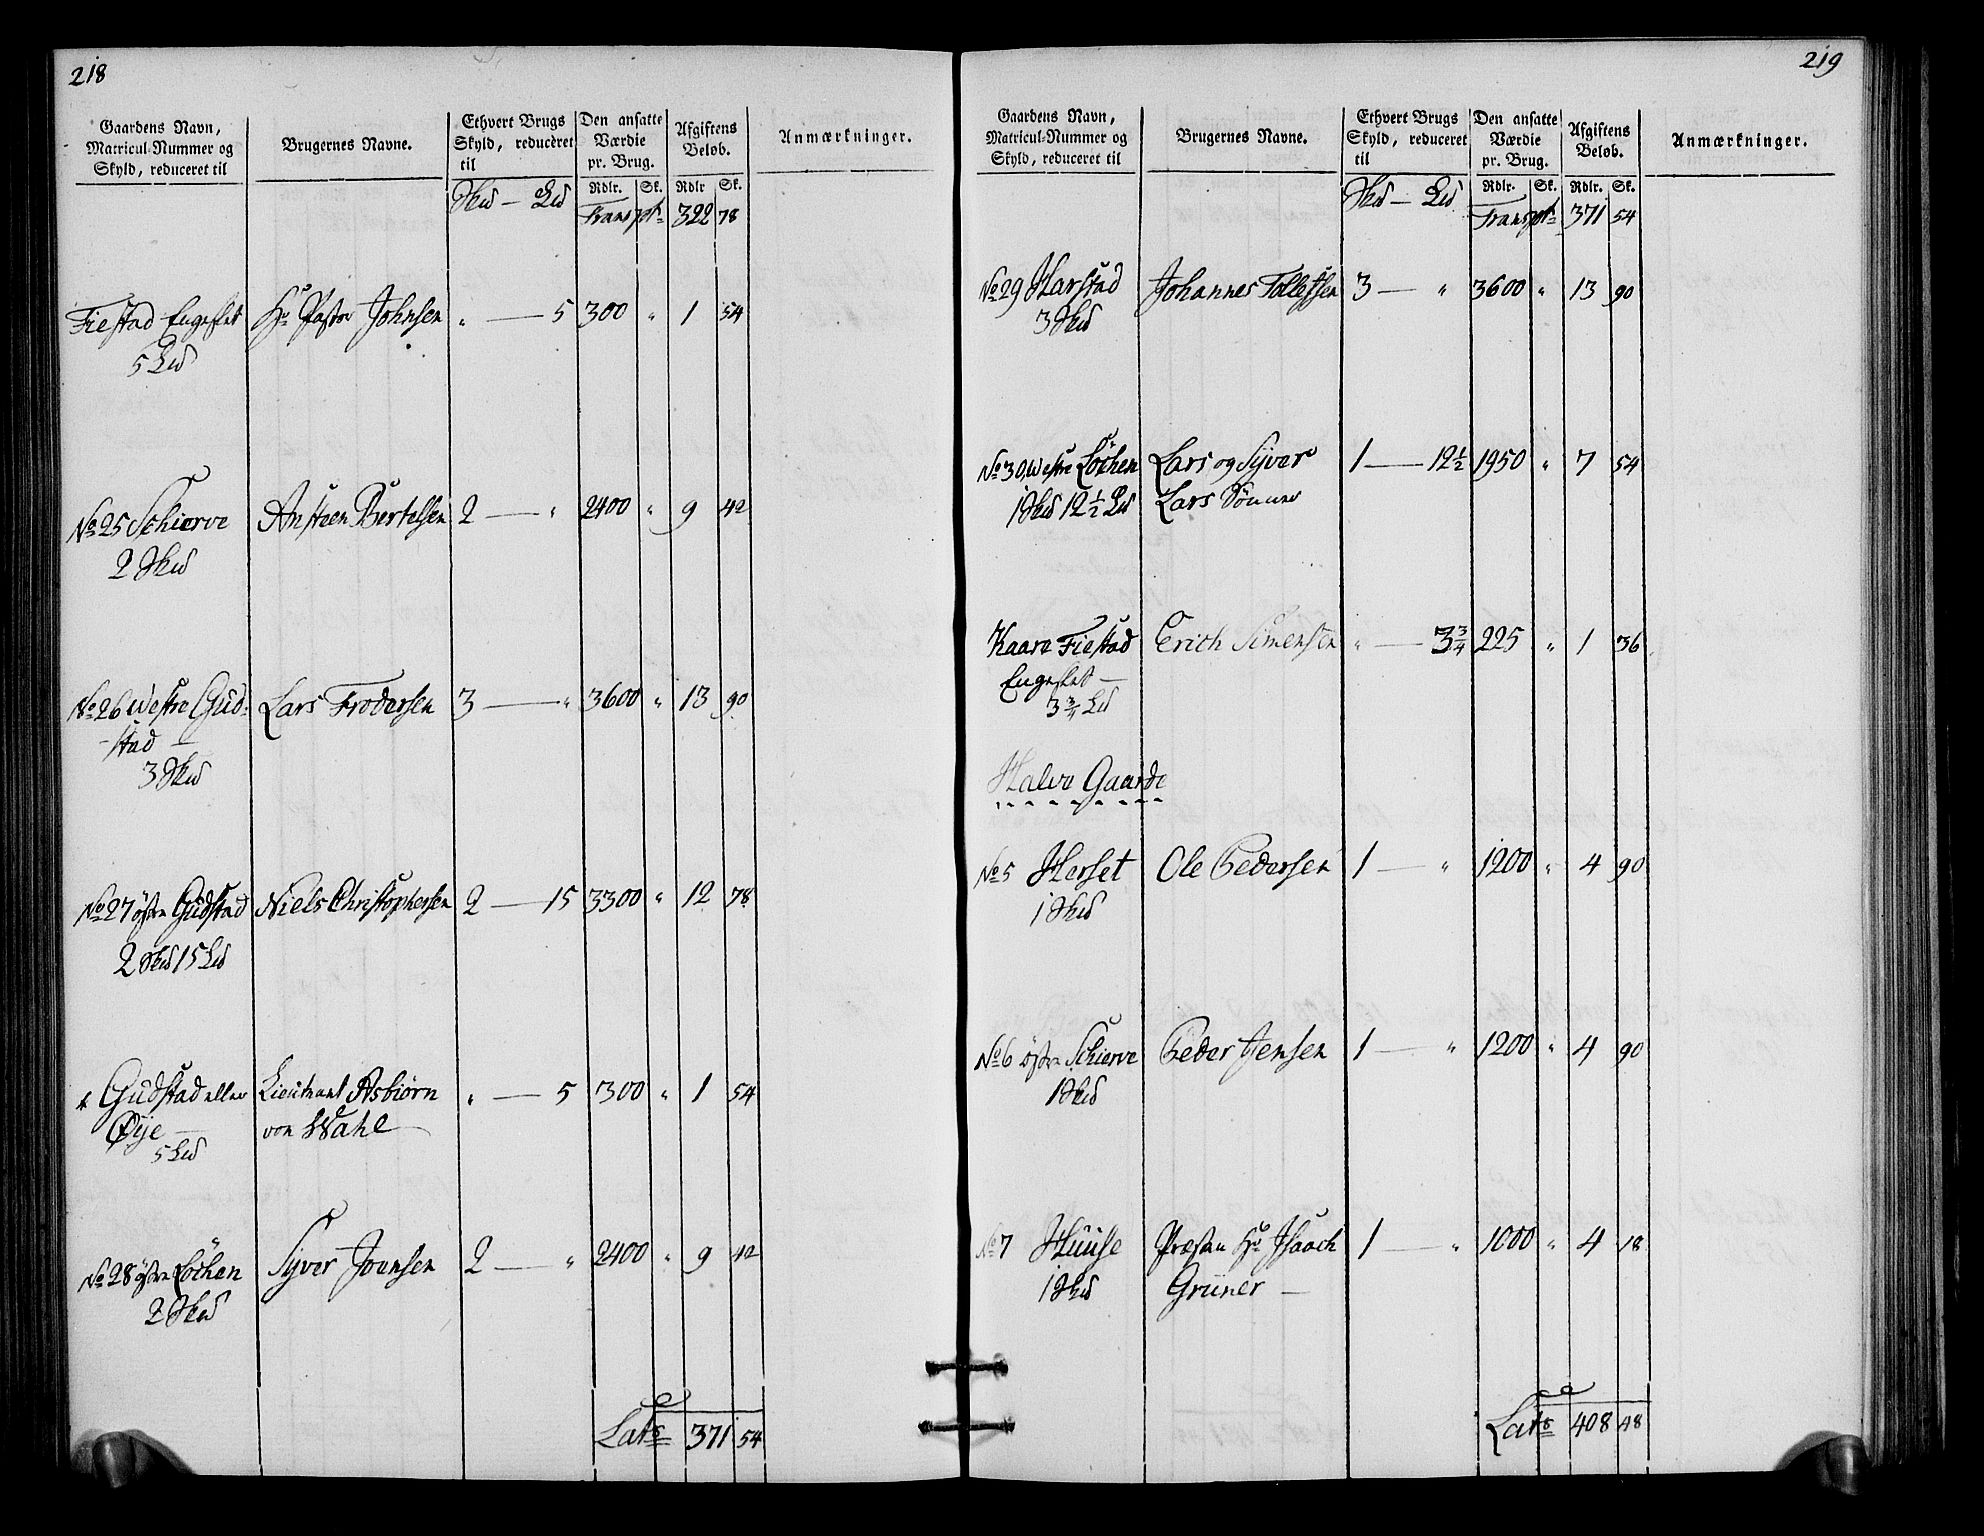 218
Gaardens Navn, Matricul-Nummer og Skyld, reduceret til
Brugernes Navne.
Ethvert Brugs Skyld, reduceret til
Den ansatte Værdie pr. Brug.
Afgiftens Beløb.
Anmærkninger.
Skd — Ld Rdlr. Sk. Rdlr Sk.
Transpt 322 78
Fiestad Engeslet Hr Pastor Johnsen " — 5 300 " 1 54
5 Ld
No 25 Schierve Ansteen Bertelsen 2 — " 2400 " 9 42
2 Skd
No 26 Westre Gud- Lars Frodersen 3 — " 3600 " 13 90
stad —
3 Skd
No 27 østre Gudstad Niels Christophersen 2 — 15 3300 " 12 78
2 Skd 15 Ld
Gudstad eller Lieutnant Asbiørn " — 5 300 " 1 54
Øye — von Wahl
5 Ld
No 28 østre Löchen Syver Jonsen 2 — " 2400 " 9 42
2 Skd
Lats 371 54
219
Gaardens Navn, Matricul-Nummer og Skyld, reduceret til
Brugernes Navne.
Ethvert Brugs Skyld, reduceret til
Den ansatte Værdie pr. Brug.
Afgiftens Beløb.
Anmærkninger.
Skd — Ld Rdlr. Sk. Rdlr. Sk.
Transpt 371 54
No 29 Harstad Johannes Tollefsen 3 — " 3600 " 13 90
3 Skd
No 30 Westre Löchen Lars og Syver 1 — 12½ 1950 " 7 54
1 Skd 12½ Ld Lars Sønner
Kaare Fiestad Erich Simensen " — 3¾ 225 " 1 36
Engeslet —
3¾ Ld
Halve Gaarde
No 5 Herset Ole Pedersen 1 — " 1200 " 4 90
1 Skd
No 6 østre Schierve Peder Jensen 1 — " 1200 " 4 90
1 Skd
No 7 Huuse Præsten Hr Isaach 1 — " 1000 " 4 18
1 Skd Grüner —
Lats 408 48